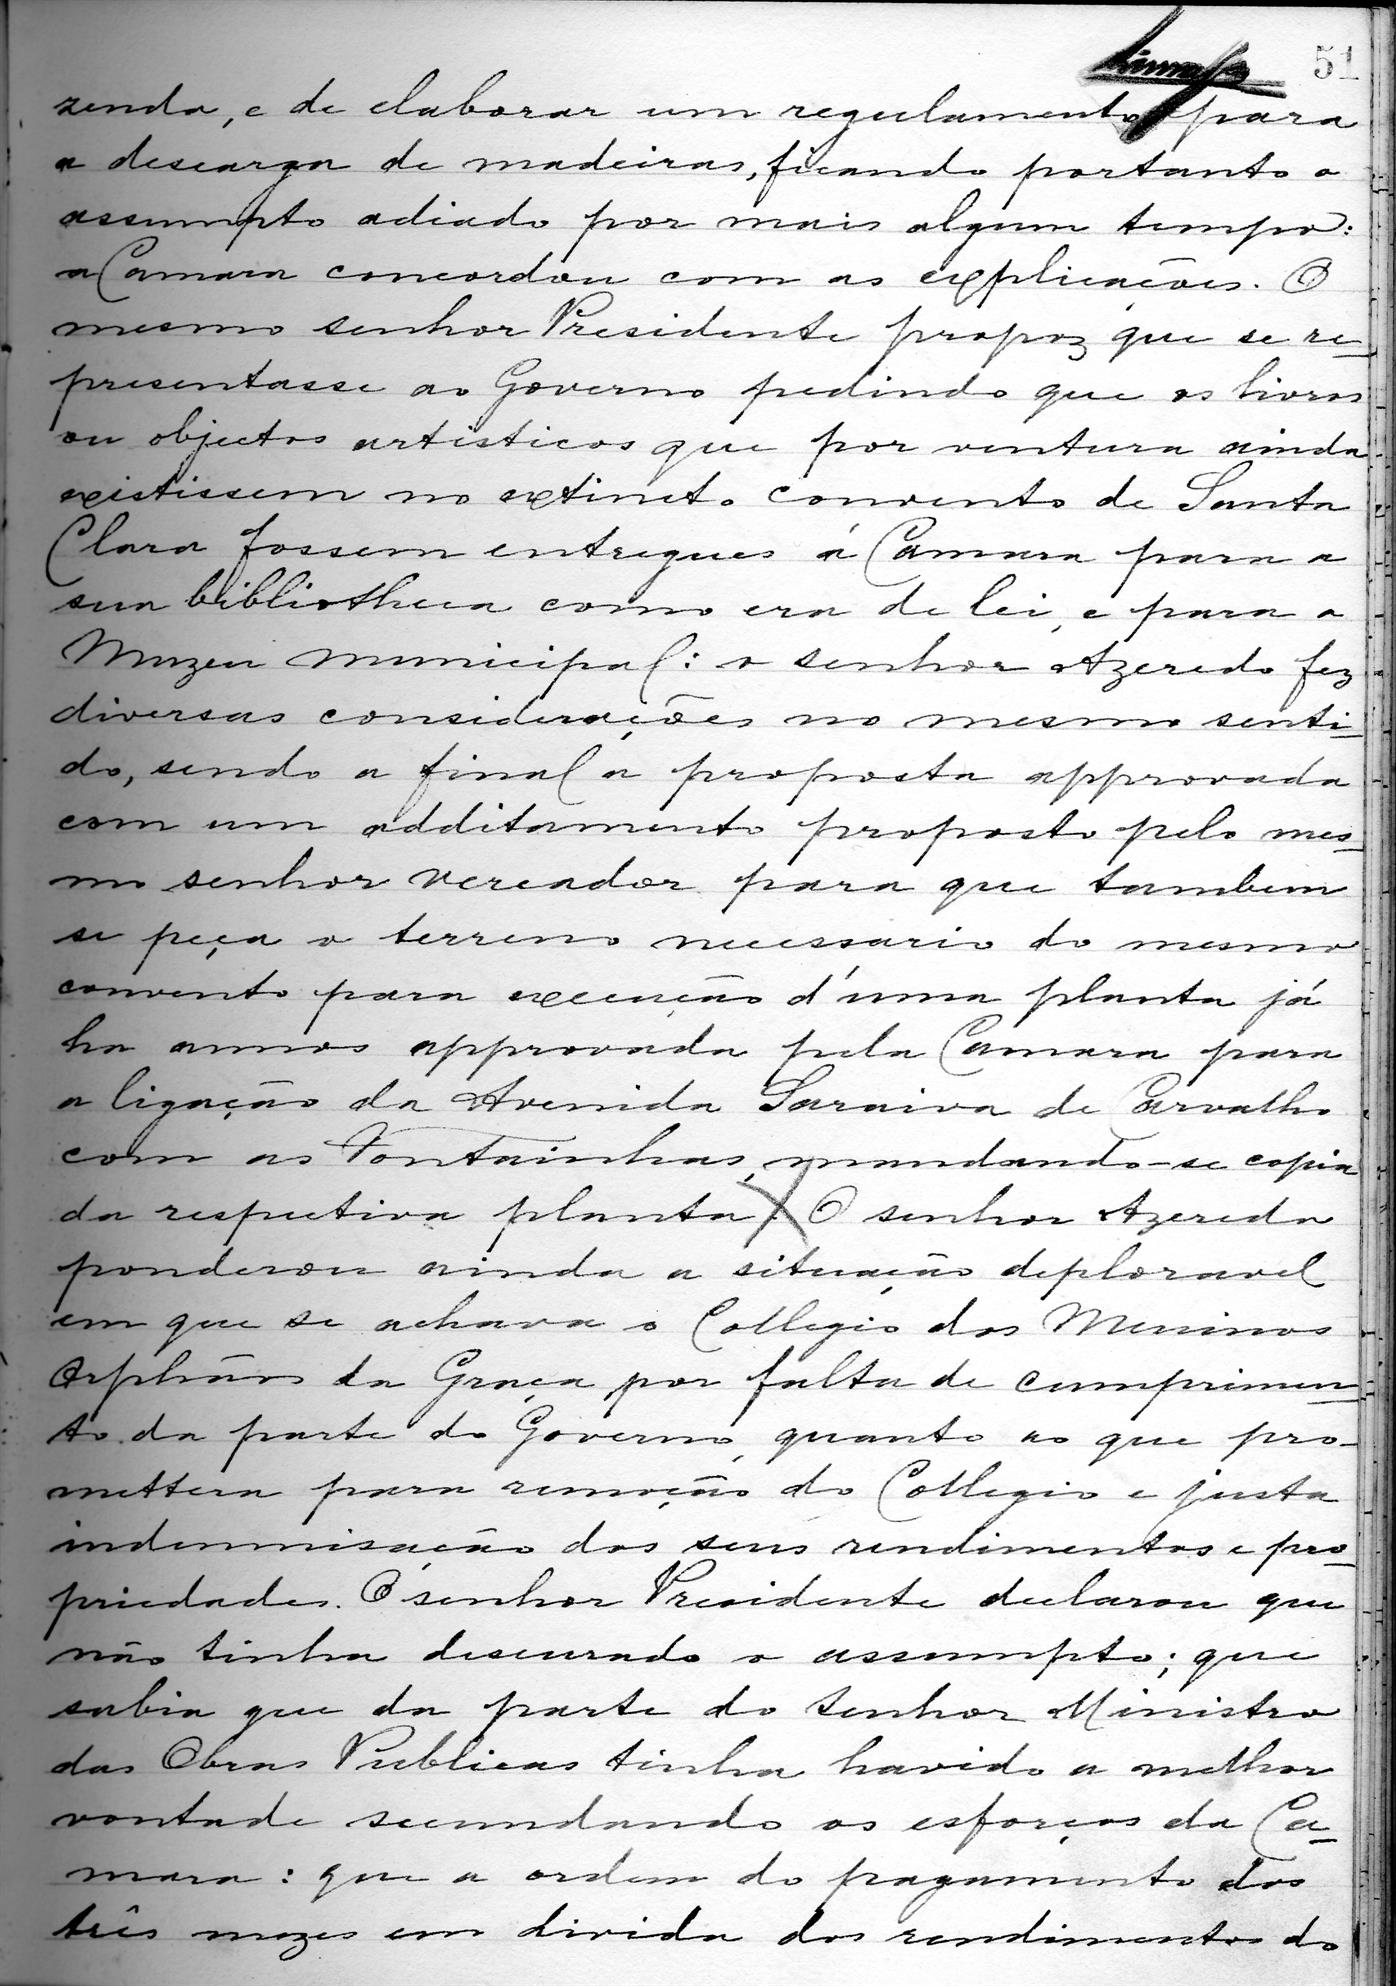 51
zenda, e de elaborar um regulamento para
a descarga de madeiras, ficando portanto o
assumpto adiado por mais algum tempo:
a Camara concordou com as explicações. O
mesmo senhor Presidente propoz que se re-
presentasse ao Governo pedindo que os livros
ou objectos artisticos que por ventura ainda
existissem no extincto convento de Santa
Clara fossem entregues á Camara para a
sua bibliotheca como era de lei, e para o
Muzeu municipal: o senhor Azeredo fez
diversas considerações no mesmo senti-
do, sendo a final a proposta approvada
com um additamento proposto pelo mes-
mo senhor vereador para que tambem
se peça o terreno necessario do mesmo
convento para execução d'uma planta já
ha annos approvada pela Camara para
a ligação da Avenida Saraiva de Carvalho
com as Fontainhas, mandando-se copia
da respectiva planta. O senhor Azeredo
ponderou ainda a situação deploravel
em que se achava o Collegio dos Meninos
Orphãos da Graça por falta de cumprimen-
to da parte do Governo, quanto ao que pro-
mettera para remoção do Collegio e justa
indemnisação dos seus rendimentos e pro-
priedades. O senhor Presidente declarou que
não tinha descurado o assumpto; que
sabia que da parte do senhor Ministro
das Obras Publicas tinha havido a melhor
vontade secundando os esforços da Ca-
mara: que a ordem do pagamento dos
três mezes em divida dos rendimentos do